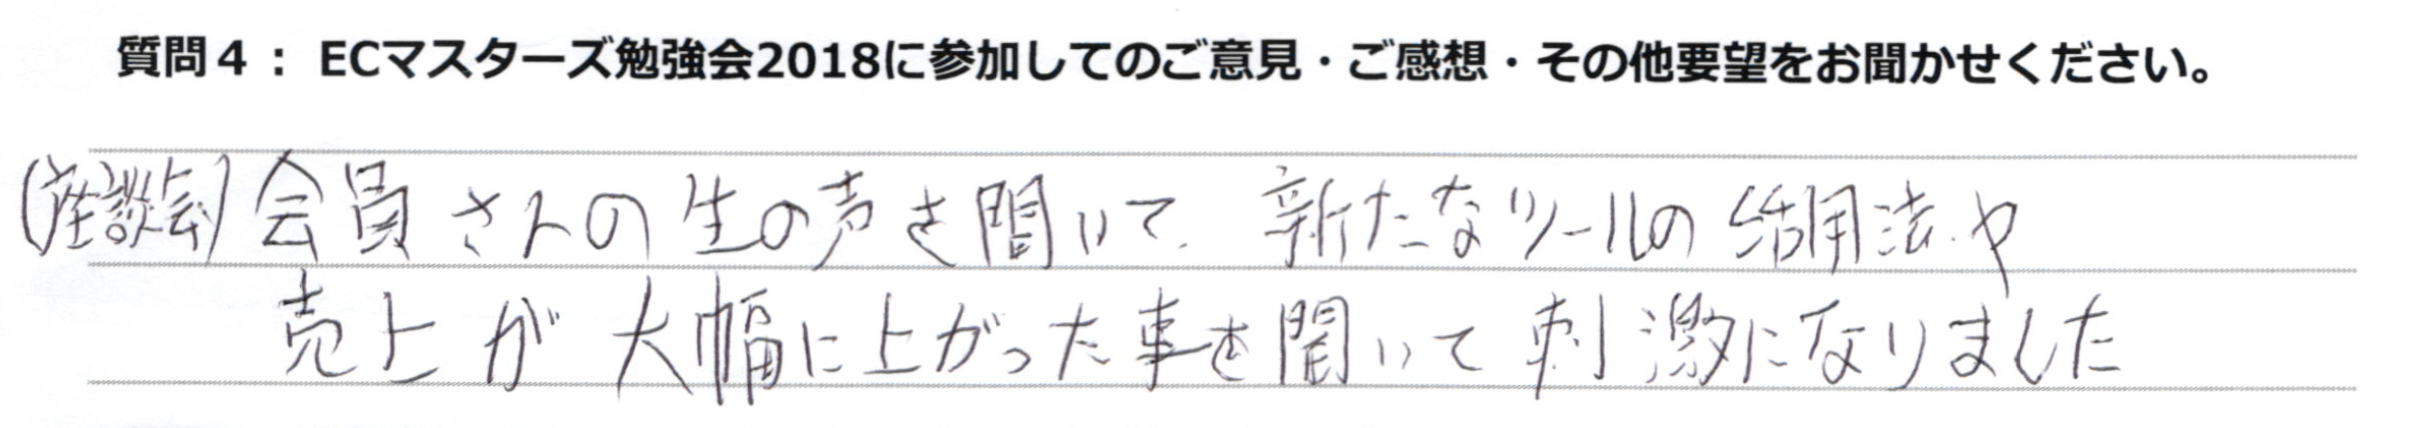 質問４： ECマスターズ勉強会2018に参加してのご意見・ご感想・その他要望をお聞かせください。
(座談会)会員さんの生の声を聞いて、新たなツールの活用法や
売上が大幅に上がった事を聞いて刺激になりました